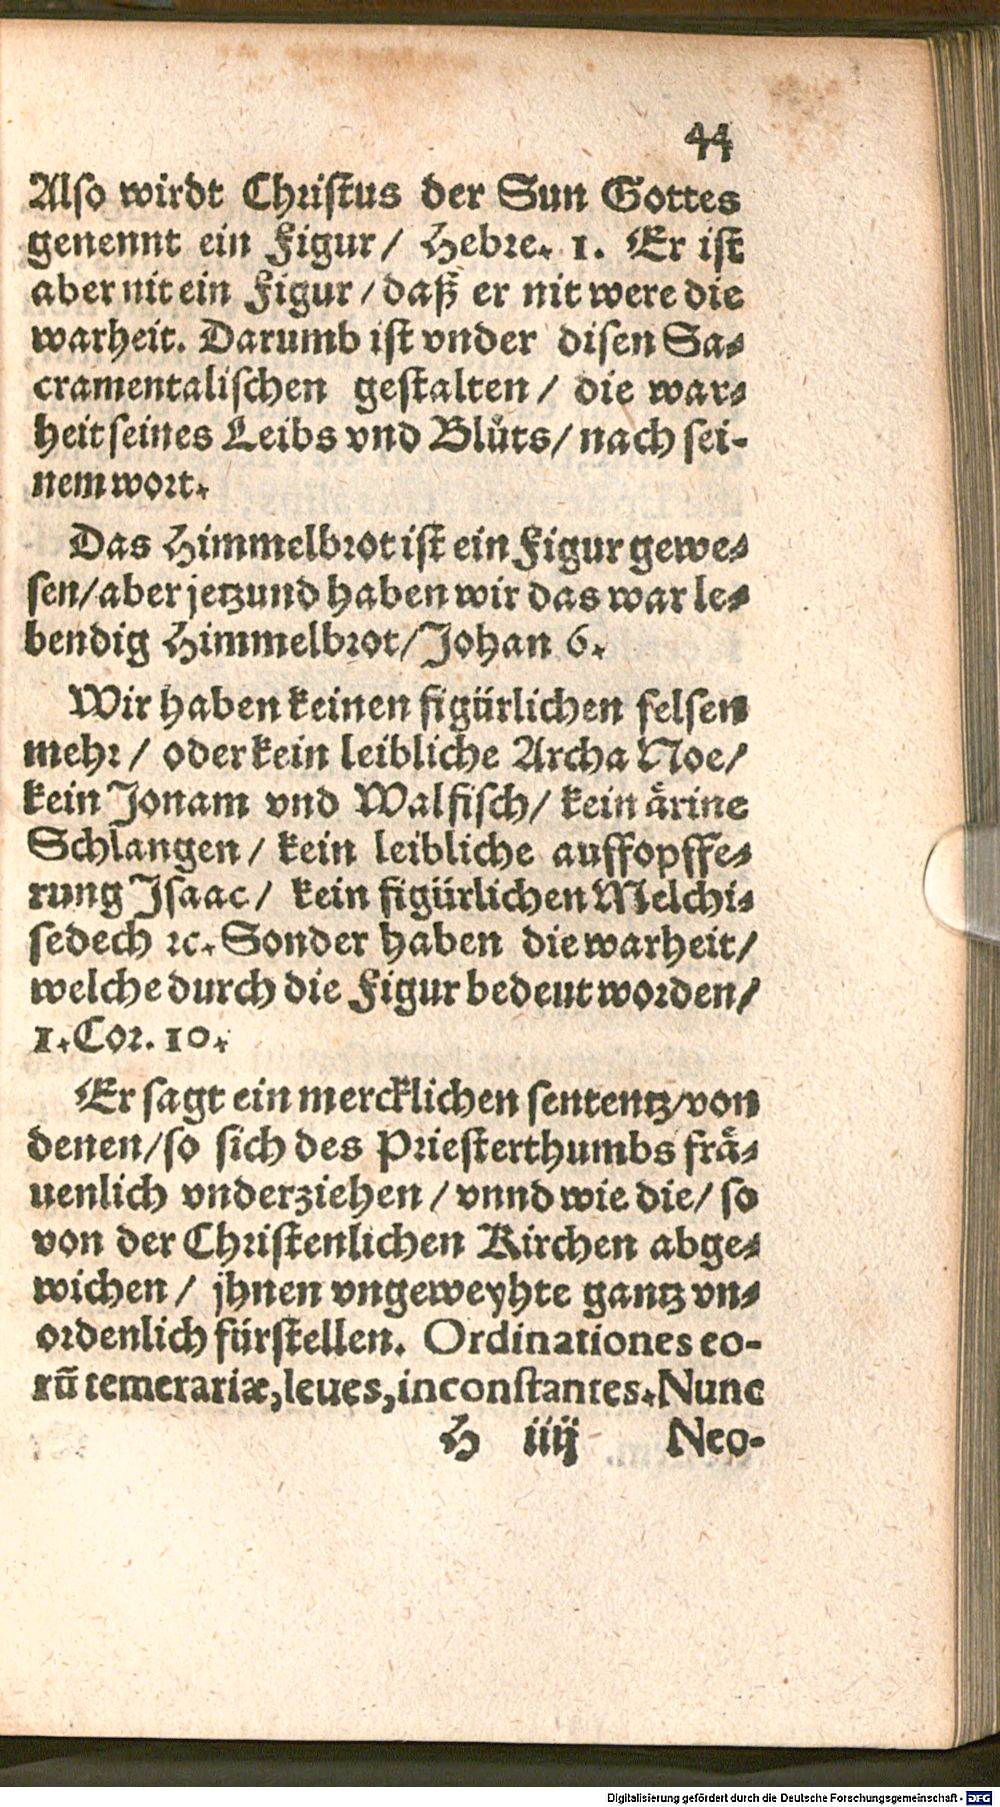 44
Also wirdt Christus der Sun Gottes
genennt ein Figur / Hebre. 1. Er ist
aber nit ein Figur / daß er nit were die
warheit. Darumb ist vnder disen Sa-
cramentalischen gestalten / die war-
heit seines Leibs vnd Blůts / nach sei-
nem wort.
Das Himmelbrot ist ein Figur gewe-
sen / aber jetzund haben wir das war le-
bendig Himmelbrot / Johan 6.
Wir haben keinen figürlichen felsen
mehr / oder kein leibliche Archa Noe /
kein Jonam vnd Walfisch / kein ärine
Schlangen / kein leibliche auffopffe-
rung Isaac / kein figürlichen Melchi-
sedech ꝛc. Sonder haben die warheit /
welche durch die Figur bedeut worden /
1. Cor. 10.
Er sagt ein mercklichen sententz / von
denen / so sich des Priesterthumbs frä-
uenlich vnderziehen / vnnd wie die / so
von der Christenlichen Kirchen abge-
wichen / jhnen vngeweyhte gantz vn-
ordenlich fürstellen. Ordinationes eo-
rũ temerariæ, leues, inconstantes. Nunc
H iiij Neo-
Digitalisierung gefördert durch die Deutsche Forschungsgemeinschaft - DFG